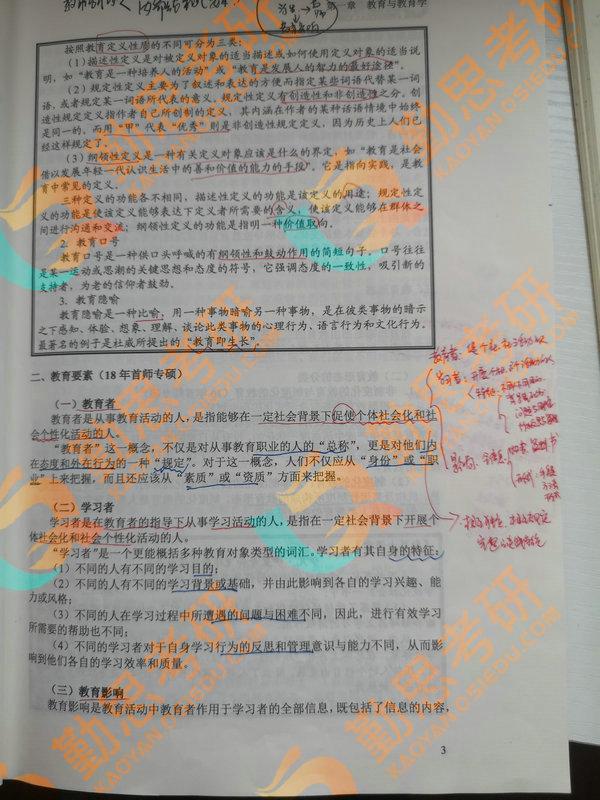 第一章 教育与教育学
按照教育定义性质的不同可分为三类。
（1）描述性定义是对被定义对象的适当描述或如何使用定义对象的适当说
明，如“教育是一种培养人的活动”或“教育是发展人的智力的最好途径”。
（2）规定性定义主要为了叙述和表达的方便而指定某些词语代替某一词
语，或者规定某一词语所代表的意义。规定性定义有创造性和非创造性之分。创
造性规定定义指作者自己所创制的定义，其内涵在作者的某种话语情境中始终
是同一的。而用“甲”代表“优秀”则是非创造性规定定义，因为历史上人们已
经这样规定了。
（3）纲领性定义是一种有关定义对象应该是什么的界定，如“教育是社会
借以发展年轻一代认识生活中的善和价值的能力的手段”。它是指向实践，是教
育中常见的定义。
三种定义的功能各不相同，描述性定义的功能是该定义的用途；规定性定
义的功能是使该定义能够表达下定义者所需要的含义，使该定义能够在群体之
间进行沟通和交流；纲领性定义的功能是指明一种价值取向。
2. 教育口号
教育口号是一种供口头呼喊的有纲领性和鼓动作用的简短句子，口号往往
是某一运动或思潮的关键思想和态度的符号，它强调态度的一致性，吸引新的
支持者，为老的信仰者鼓劲。
3. 教育隐喻
教育隐喻是一种比喻，用一种事物暗喻另一种事物，是在彼类事物的暗示
之下感知、体验、想象、理解、谈论此类事物的心理行为、语言行为和文化行为。
最著名的例子是杜威所提出的“教育即生长”。
二、教育要素（18 年首师专硕）
（一）教育者
教育者是从事教育活动的人，是指能够在一定社会背景下促使个体社会化和社
会个性化活动的人。
“教育者”这一概念，不仅是对从事教育职业的人的“总称”，更是对他们内
在态度和外在行为的一种“规定”。对于这一概念，人们不仅应从“身份”或“职
业”上来把握，而且还应该从“素质”或“资质”方面来把握。
（二）学习者
学习者是在教育者的指导下从事学习活动的人，是指在一定社会背景下开展个
体社会化和社会个性化活动的人。
“学习者”是一个更能概括多种教育对象类型的词汇。学习者有其自身的特征：
（1）不同的人有不同的学习目的；
（2）不同的人有不同的学习背景或基础，并由此影响到各自的学习兴趣、能
力或风格；
（3）不同的人在学习过程中所遭遇的问题与困难不同，因此，进行有效学习
所需要的帮助也不同；
（4）不同的学习者对于自身学习行为的反思和管理意识与能力不同，从而影
响到他们各自的学习效率和质量。
（三）教育影响
教育影响是教育活动中教育者作用于学习者的全部信息，既包括了信息的内容，
3
勤思考研
KAOYAN.QSIEDU.COM